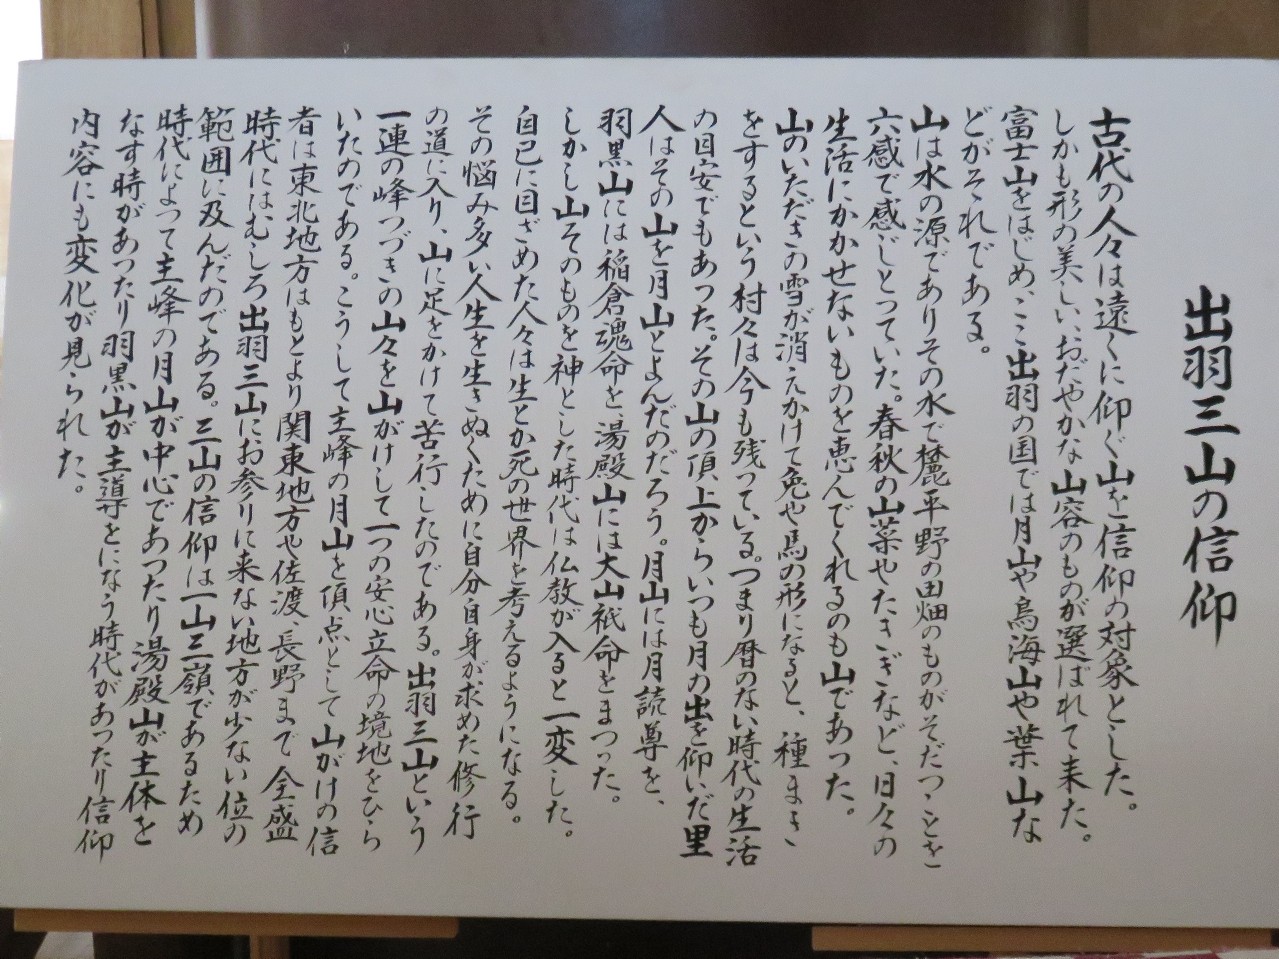 出羽三山の信仰
古代の人々は遠くに仰ぐ山を信仰の対象とした。
しかも形の美しい、おだやかな山容のものが選ばれて来た。
富士山をはじめ、ここ出羽の国では月山や鳥海山や葉山な
どがそれである。
山は水の源でありその水で麓平野の田畑のものがそだつことを
六感で感じとっていた。春秋の山菜やたきぎなど、日々の
生活にかかせないものを恵んでくれるのも山であった。
山のいただきの雪が消えかけて兔や馬の形になると、種まき
をするという村々は今も残っている。つまり暦のない時代の生活
の目安でもあった。その山の頂上からいつも月の出を仰いだ里
人はその山を月山とよんだのだろう。月山には月読尊を、
羽黒山には稲倉魂命を、湯殿山には大山祇命をまつった。
しかし山そのものを神とした時代は仏教が入ると一変した。
自己に目ざめた人々は生とか死の世界を考えるようになる。
その悩み多い人生を生きぬくために自分自身が求めた修行
の道に入り、山に足をかけて苦行したのである。出羽三山という
一連の峰つづきの山々を山がけして一つの安心立命の境地をひら
いたのである。こうして主峰の月山を頂点として山がけの信
者は東北地方はもとより関東地方や佐渡、長野まで全盛
時代にはむしろ出羽三山にお参りに来ない地方が少ない位の
範囲に及んだのである。三山の信仰は一山三嶺であるため
時代によって主峰の月山が中心であったり湯殿山が主体を
なす時があったり羽黒山が主導をになう時代があったり信仰
内容にも変化が見られた。